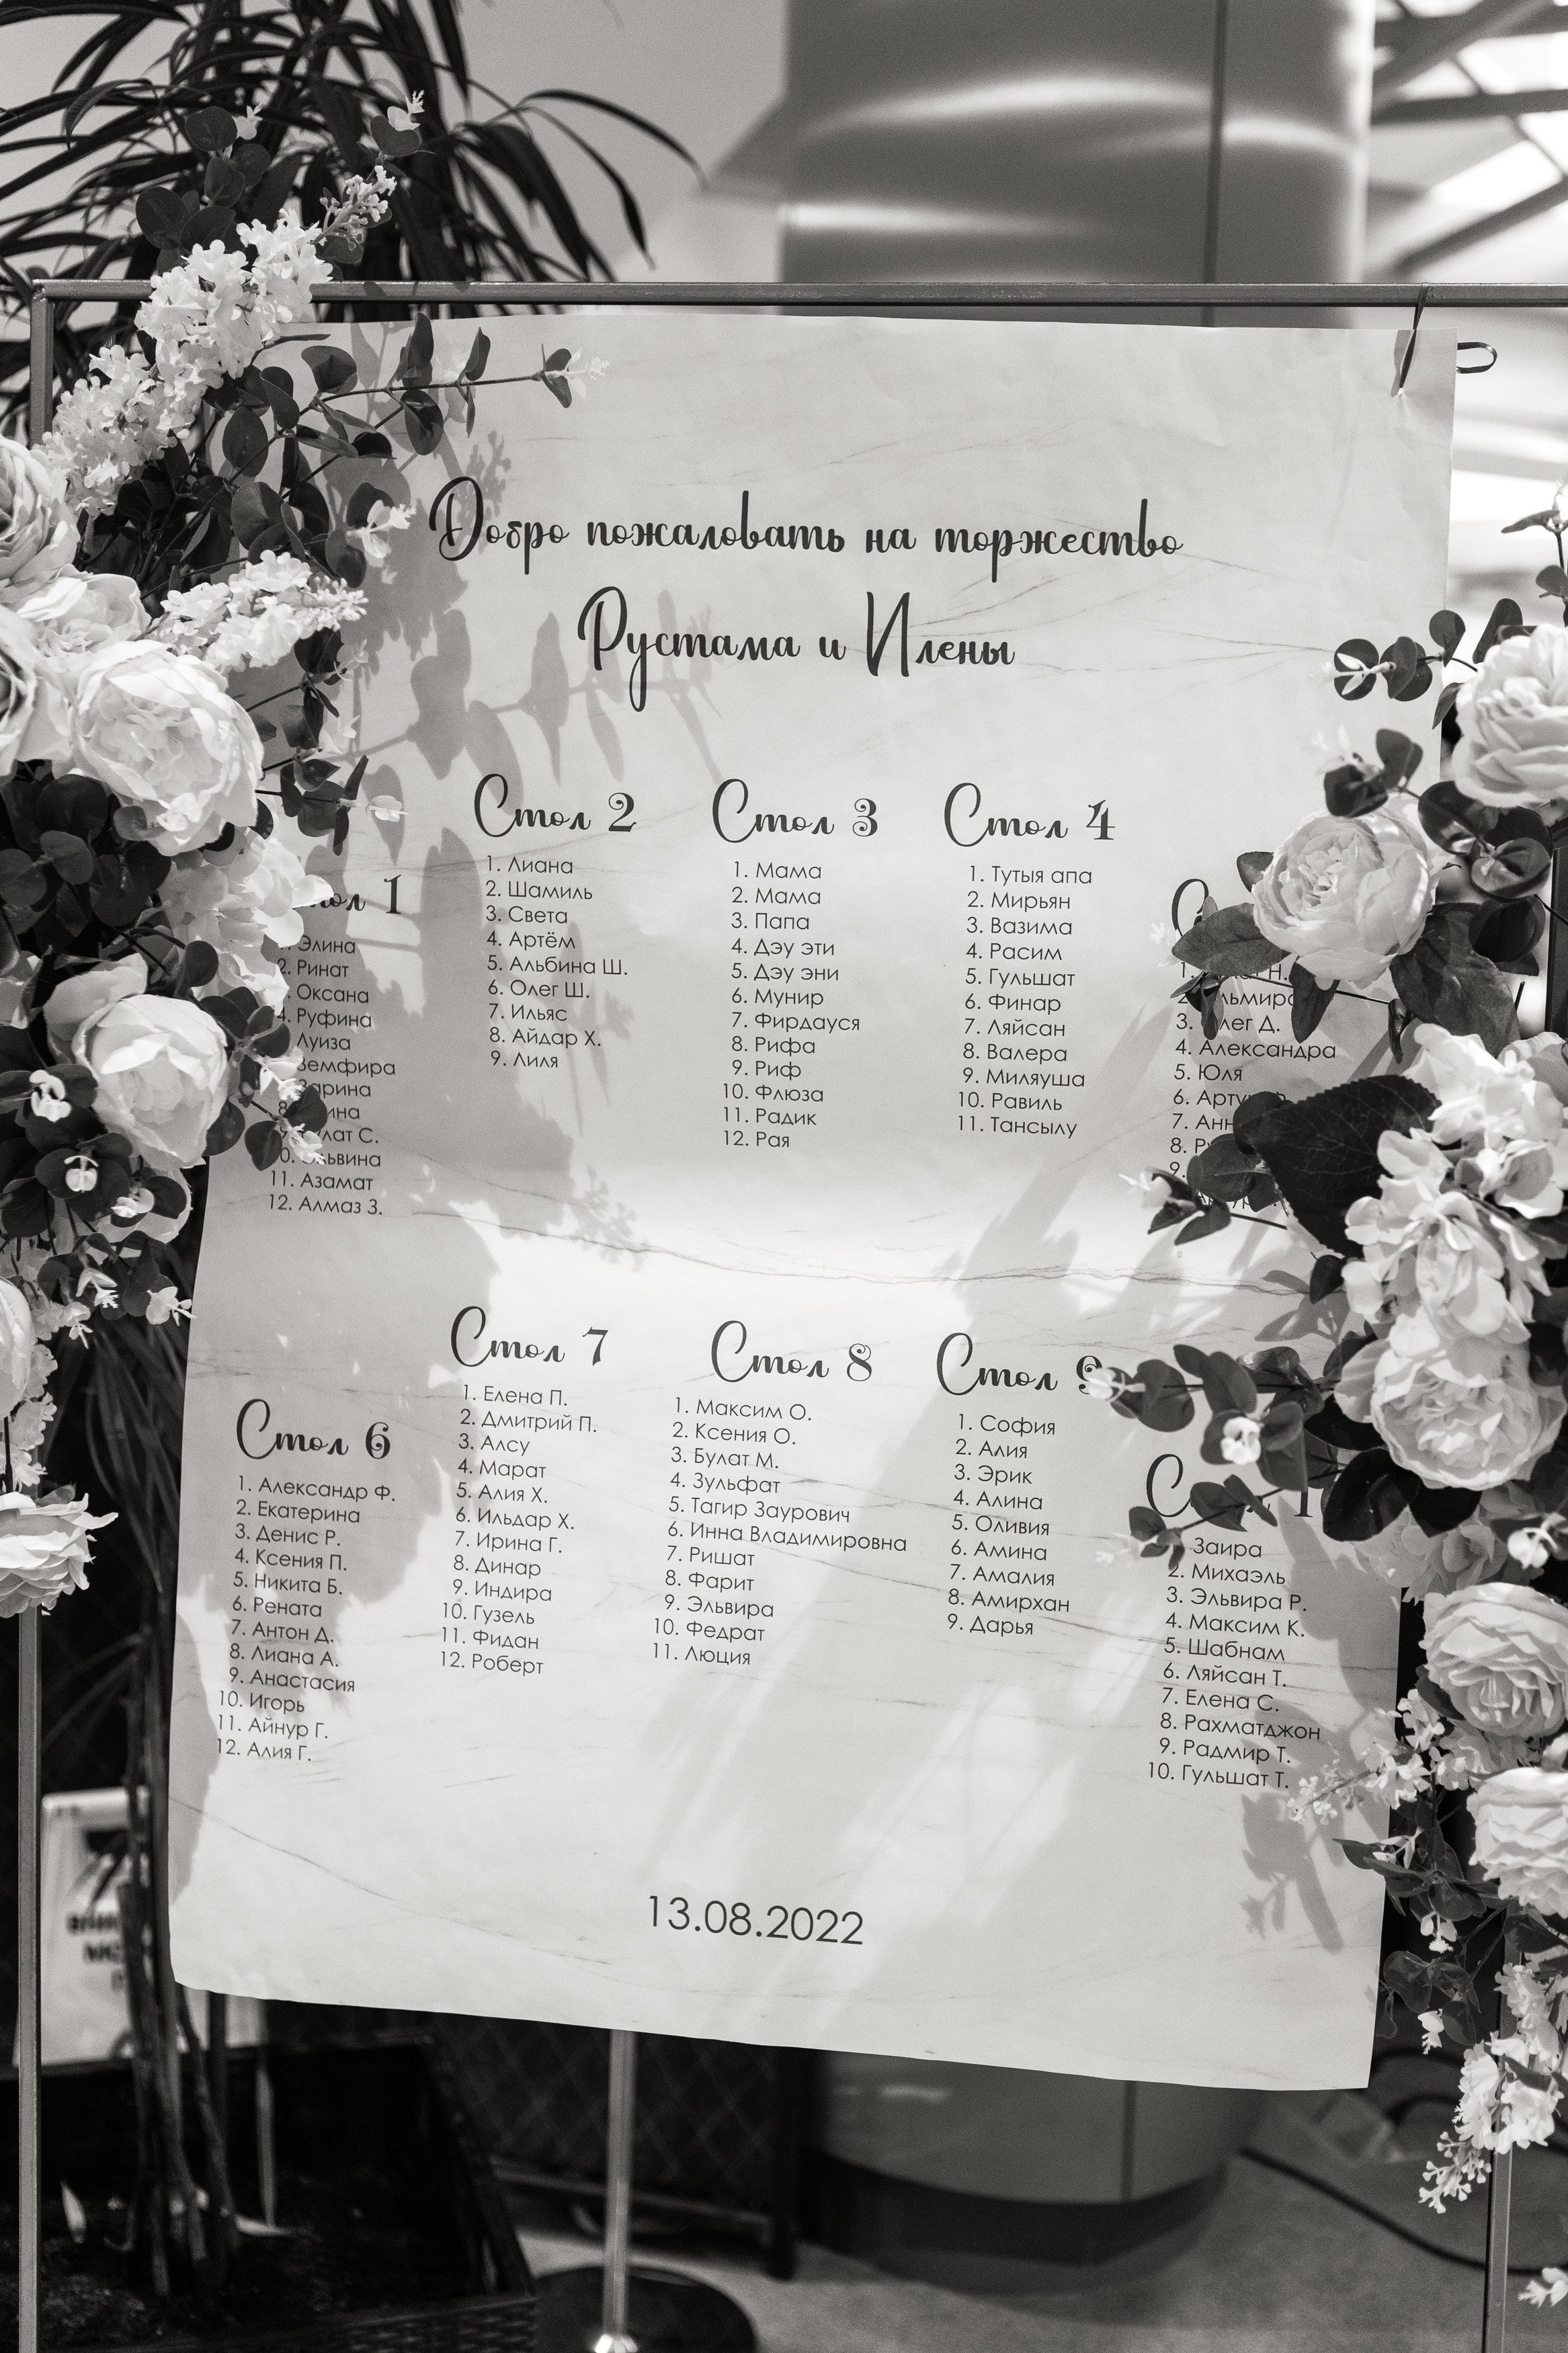 Добро пожаловать на торжество
Рустама и Илены
1
Элина
2. Ринат
Оксана
4. Руфина
Луиза
Земфира
Зарина
8.
С.
11. Азамат
12. Алмаз З.
Стол 2
1. Лиана
2. Шамиль
3. Света
4. Артём
5. Альбина Ш.
6. Олег Ш.
7. Ильяс
8. Айдар Х.
9. Лиля
Стол 3
1. Мама
2. Мама
3. Папа
4. Дэу эти
5. Дэу эни
6. Мунир
7. Фирдауся
8. Рифа
9. Риф
10. Флюза
11. Радик
12. Рая
Стол 4
1. Тутыя апа
2. Мирьян
3. Вазима
4. Расим
5. Гульшат
6. Финар
7. Ляйсан
8. Валера
9. Миляуша
10. Равиль
11. Тансылу
1. Н.
2.
3. Олег Д.
4. Александра
5. Юля
6.
7.
8.
9.
Стол 6
1. Александр Ф.
2. Екатерина
3. Денис Р.
4. Ксения П.
5. Никита Б.
6. Рената
7. Антон Д.
8. Лиана А.
9. Анастасия
10. Игорь
11. Айнур Г.
12. Алия Г.
Стол 7
1. Елена П.
2. Дмитрий П.
3. Алсу
4. Марат
5. Алия Х.
6. Ильдар Х.
7. Ирина Г.
8. Динар
9. Индира
10. Гузель
11. Фидан
12. Роберт
Стол 8
1. Максим О.
2. Ксения О.
3. Булат М.
4. Зульфат
5. Тагир Заурович
6. Инна Владимировна
7. Ришат
8. Фарит
9. Эльвира
10. Федрат
11. Люция
Стол 9
1. София
2. Алия
3. Эрик
4. Алина
5. Оливия
6. Амина
7. Амалия
8. Амирхан
9. Дарья
Заира
2. Михаэль
3. Эльвира Р.
4. Максим К.
5. Шабнам
6. Ляйсан Т.
7. Елена С.
8. Рахматджон
9. Радмир Т.
10. Гульшат Т.
13.08.2022